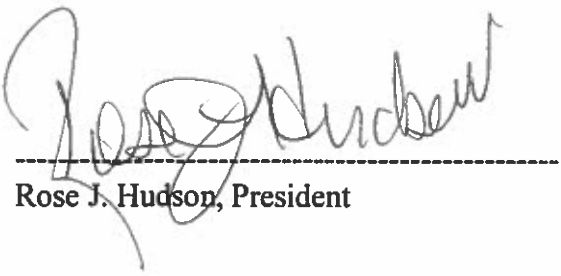 Rose J Hudson
Rose J. Hudson, President